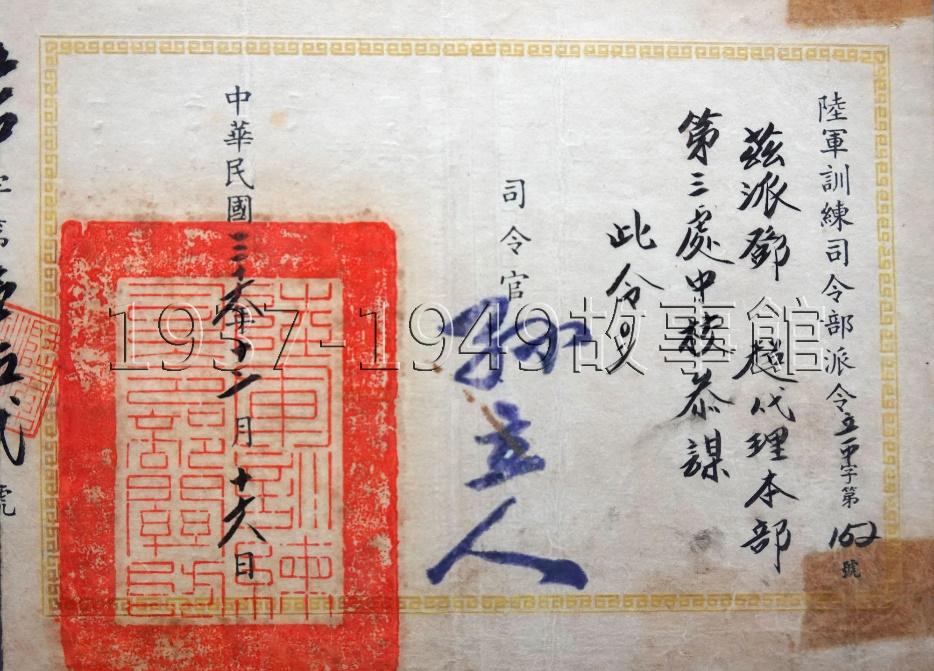 陸軍訓練司令部派令立甲字第152號
茲派鄧 超代理本部
第三處中校參謀
此令
司令官 孫立人
中華民國三十六年十二月十六日
1937-1949故事館